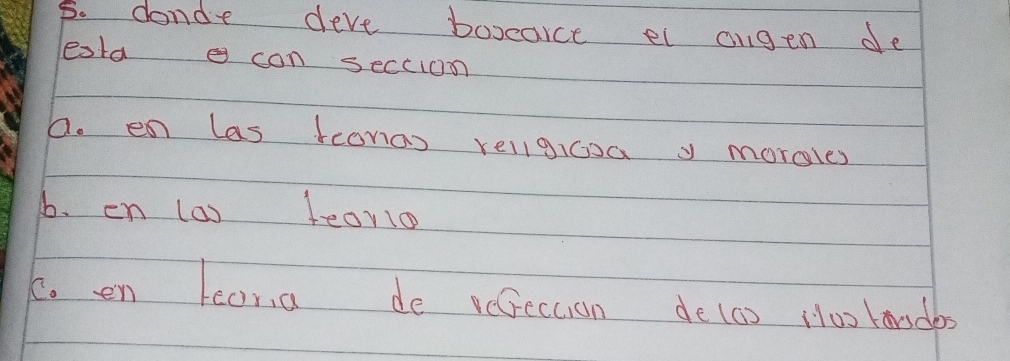 5. donde deve boscarce el origen de
esta con seccion
a. en las teorias religiosa y morales
b. en las teoria
c. en teoria de de las ilustardos